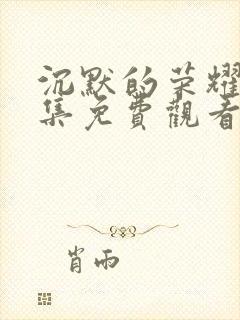 沉默的荣耀
集免費觀看
肖雨